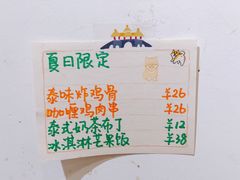 夏日限定
泰味炸鸡骨 ¥26
咖喱鸡肉串 ¥26
泰式奶茶布丁 ¥12
冰淇淋芒果饭 ¥38